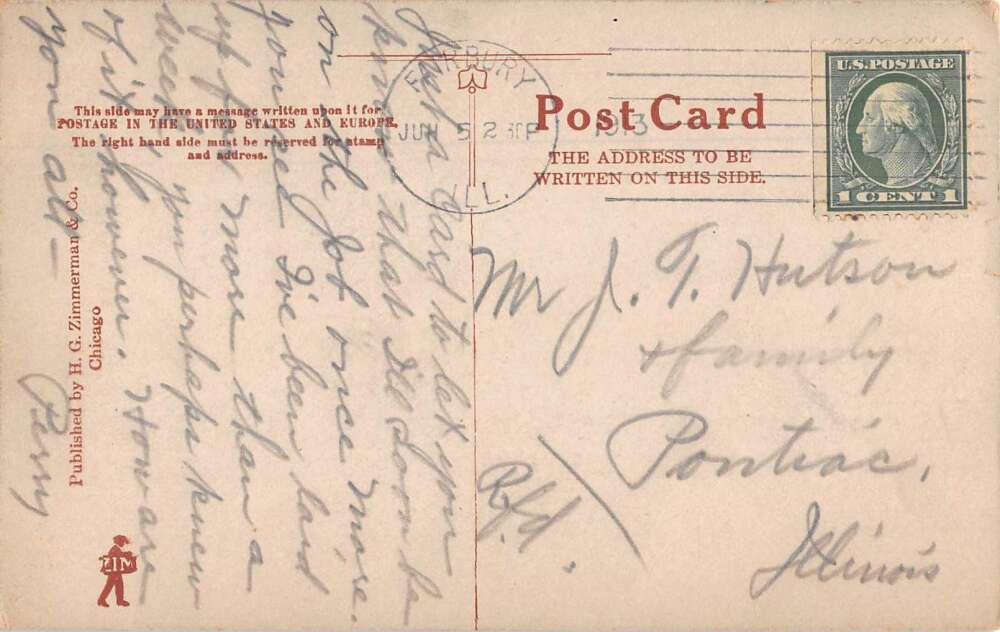 This side may have a message written upon it for
POSTAGE IN THE UNITED STATES AND EUROPE.
The right hand side must be reserved for stamp
and address.
Post Card
THE ADDRESS TO BE
WRITTEN ON THIS SIDE.
FAIRBURY
JUN 5 2 30P
1913
ILL.
U.S. POSTAGE
1 CENT 1
Published by H. G. Zimmerman & Co.
Chicago
ZIM
Just a card to let you
know that I'll soon be
on the job once more.
you see I've been laid
up for more than a
week, you perhaps knew
of it however. How are
you all —
Perry
Mr J. T. Hutson
& family
Pontiac,
Illinois
Rfd.